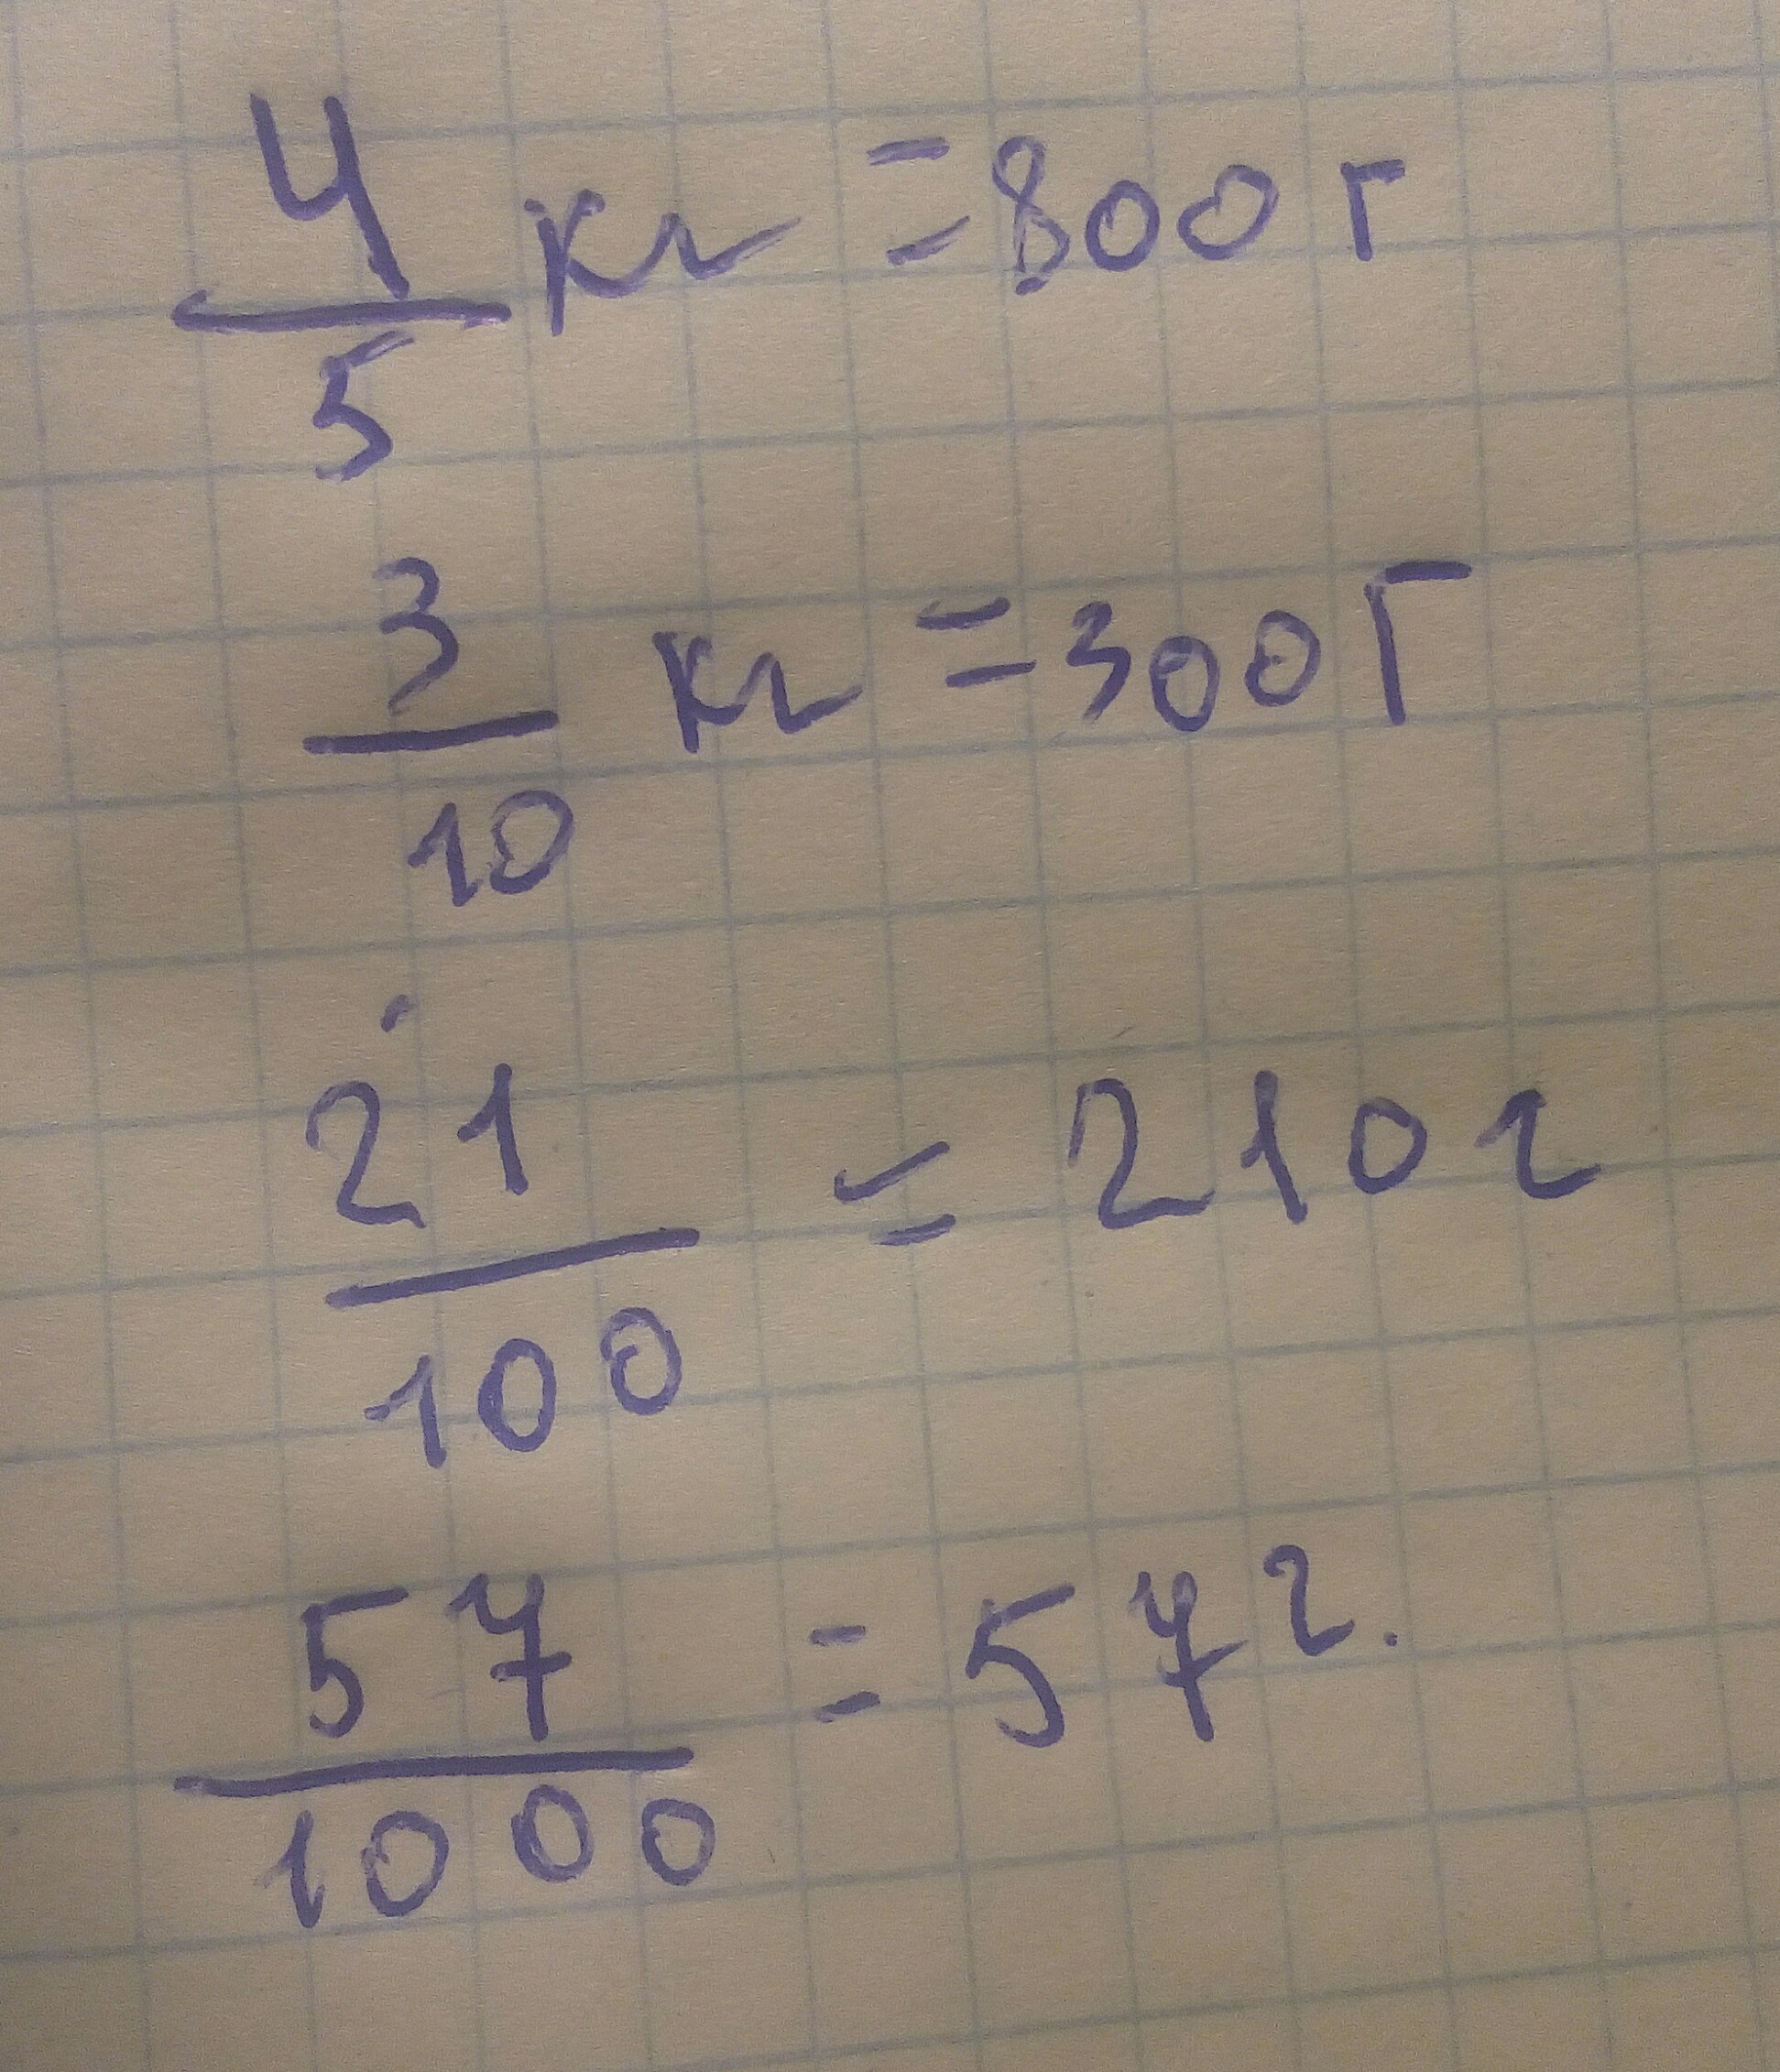 4/5 кг = 800 г
3/10 кг = 300 г
21/100 = 210 г
57/1000 = 57 г.